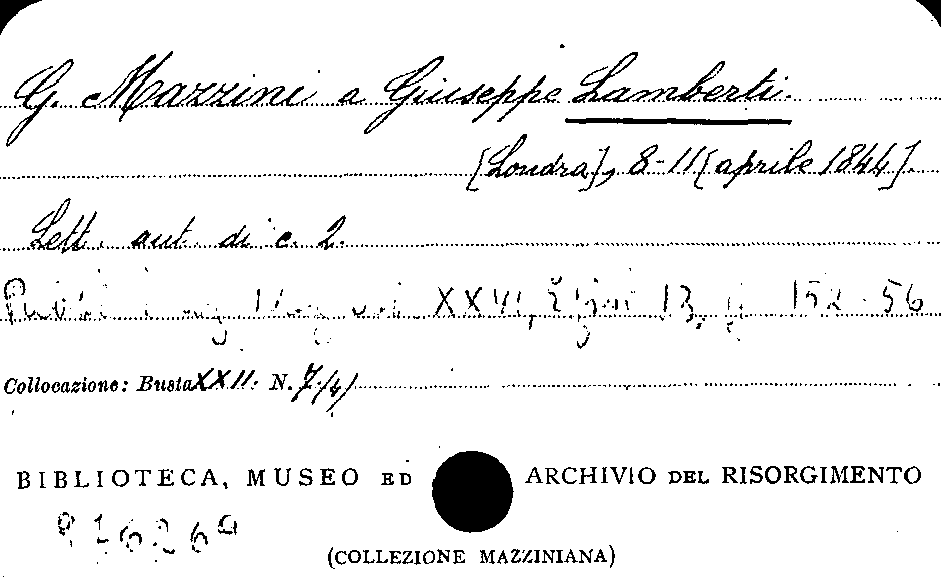 G. Mazzini a Giuseppe Lamberti.
[Londra], 8-11 [aprile 1844].
Lett. aut. di c. 2.
XXVI, 13, 152-56
Collocazione: Busta XXII. N. 7/4/
BIBLIOTECA, MUSEO ED ARCHIVIO DEL RISORGIMENTO
(COLLEZIONE MAZZINIANA)